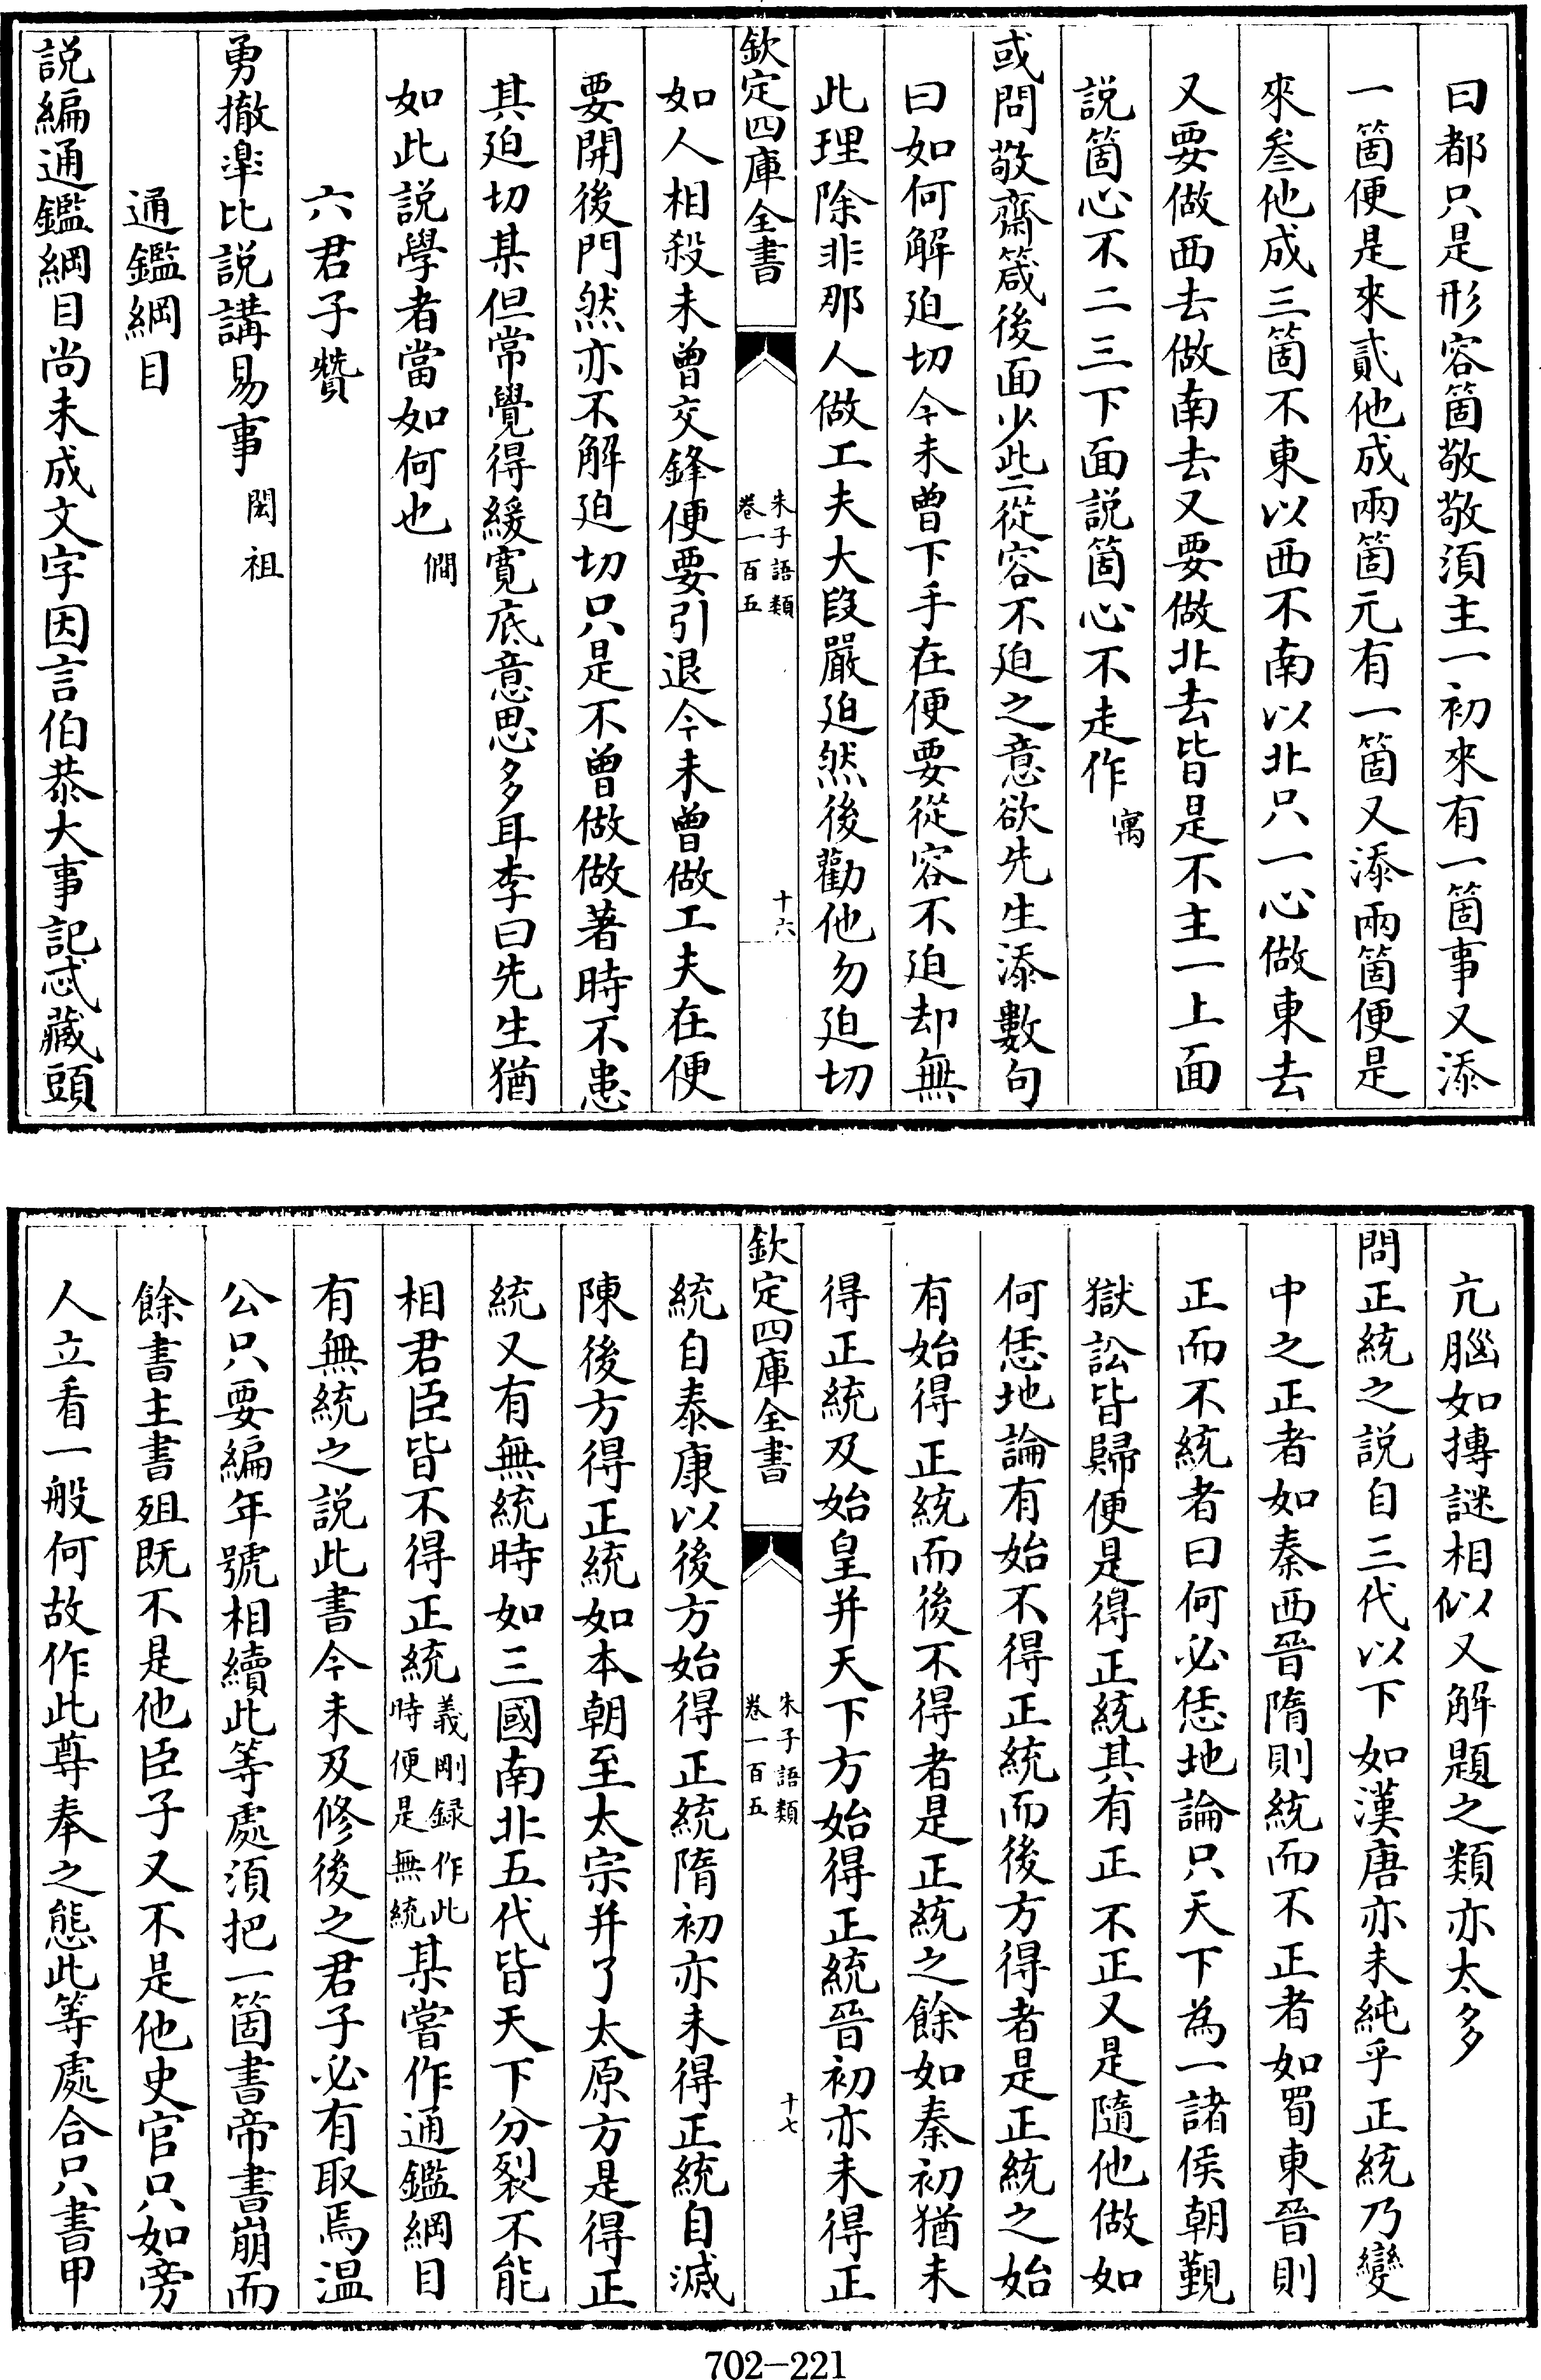 曰都只是形容箇敬敬須主一初來有一箇事又添
一箇便是來貳他成兩箇元有一箇又添兩箇便是
來叄他成三箇不東以西不南以北只一心做東去
又要做西去做南去又要做北去皆是不主一上面
説箇心不二三下面説箇心不走作寓
或問敬齋箴後面少些從容不廹之意欲先生添數句
曰如何解廹切今未曾下手在便要從容不廹却無
此理除非那人做工夫大段嚴廹然後勸他勿廹切
欽定四庫全書
朱子語類
卷一百五
十六
如人相殺未曾交鋒便要引退今未曾做工夫在便
要開後門然亦不解廹切只是不曾做做著時不患
其廹切某但常覺得緩寛底意思多耳李曰先生猶
如此説學者當如何也僩
六君子贊
勇撤臯比説講易事閎祖
通鑑綱目
説編通鑑綱目尚未成文字因言伯恭大事記忒藏頭
亢腦如搏謎相似又解題之類亦太多
問正統之説自三代以下如漢唐亦未純乎正統乃變
中之正者如秦西晉隋則統而不正者如蜀東晉則
正而不統者曰何必恁地論只天下為一諸侯朝覲
獄訟皆歸便是得正統其有正不正又是隨他做如
何恁地論有始不得正統而後方得者是正統之始
有始得正統而後不得者是正統之餘如秦初猶未
得正統及始皇并天下方始得正統晉初亦未得正
欽定四庫全書
朱子語類
卷一百五
十七
統自泰康以後方始得正統隋初亦未得正統自滅
陳後方得正統如本朝至太宗并了太原方是得正
統又有無統時如三國南北五代皆天下分裂不能
相君臣皆不得正統義剛録作此時便是無統某嘗作通鑑綱目
有無統之説此書今未及修後之君子必有取焉温
公只要編年號相續此等處須把一箇書帝書崩而
餘書主書殂既不是他臣子又不是他史官只如旁
人立看一般何故作此尊奉之態此等處合只書甲
702-221